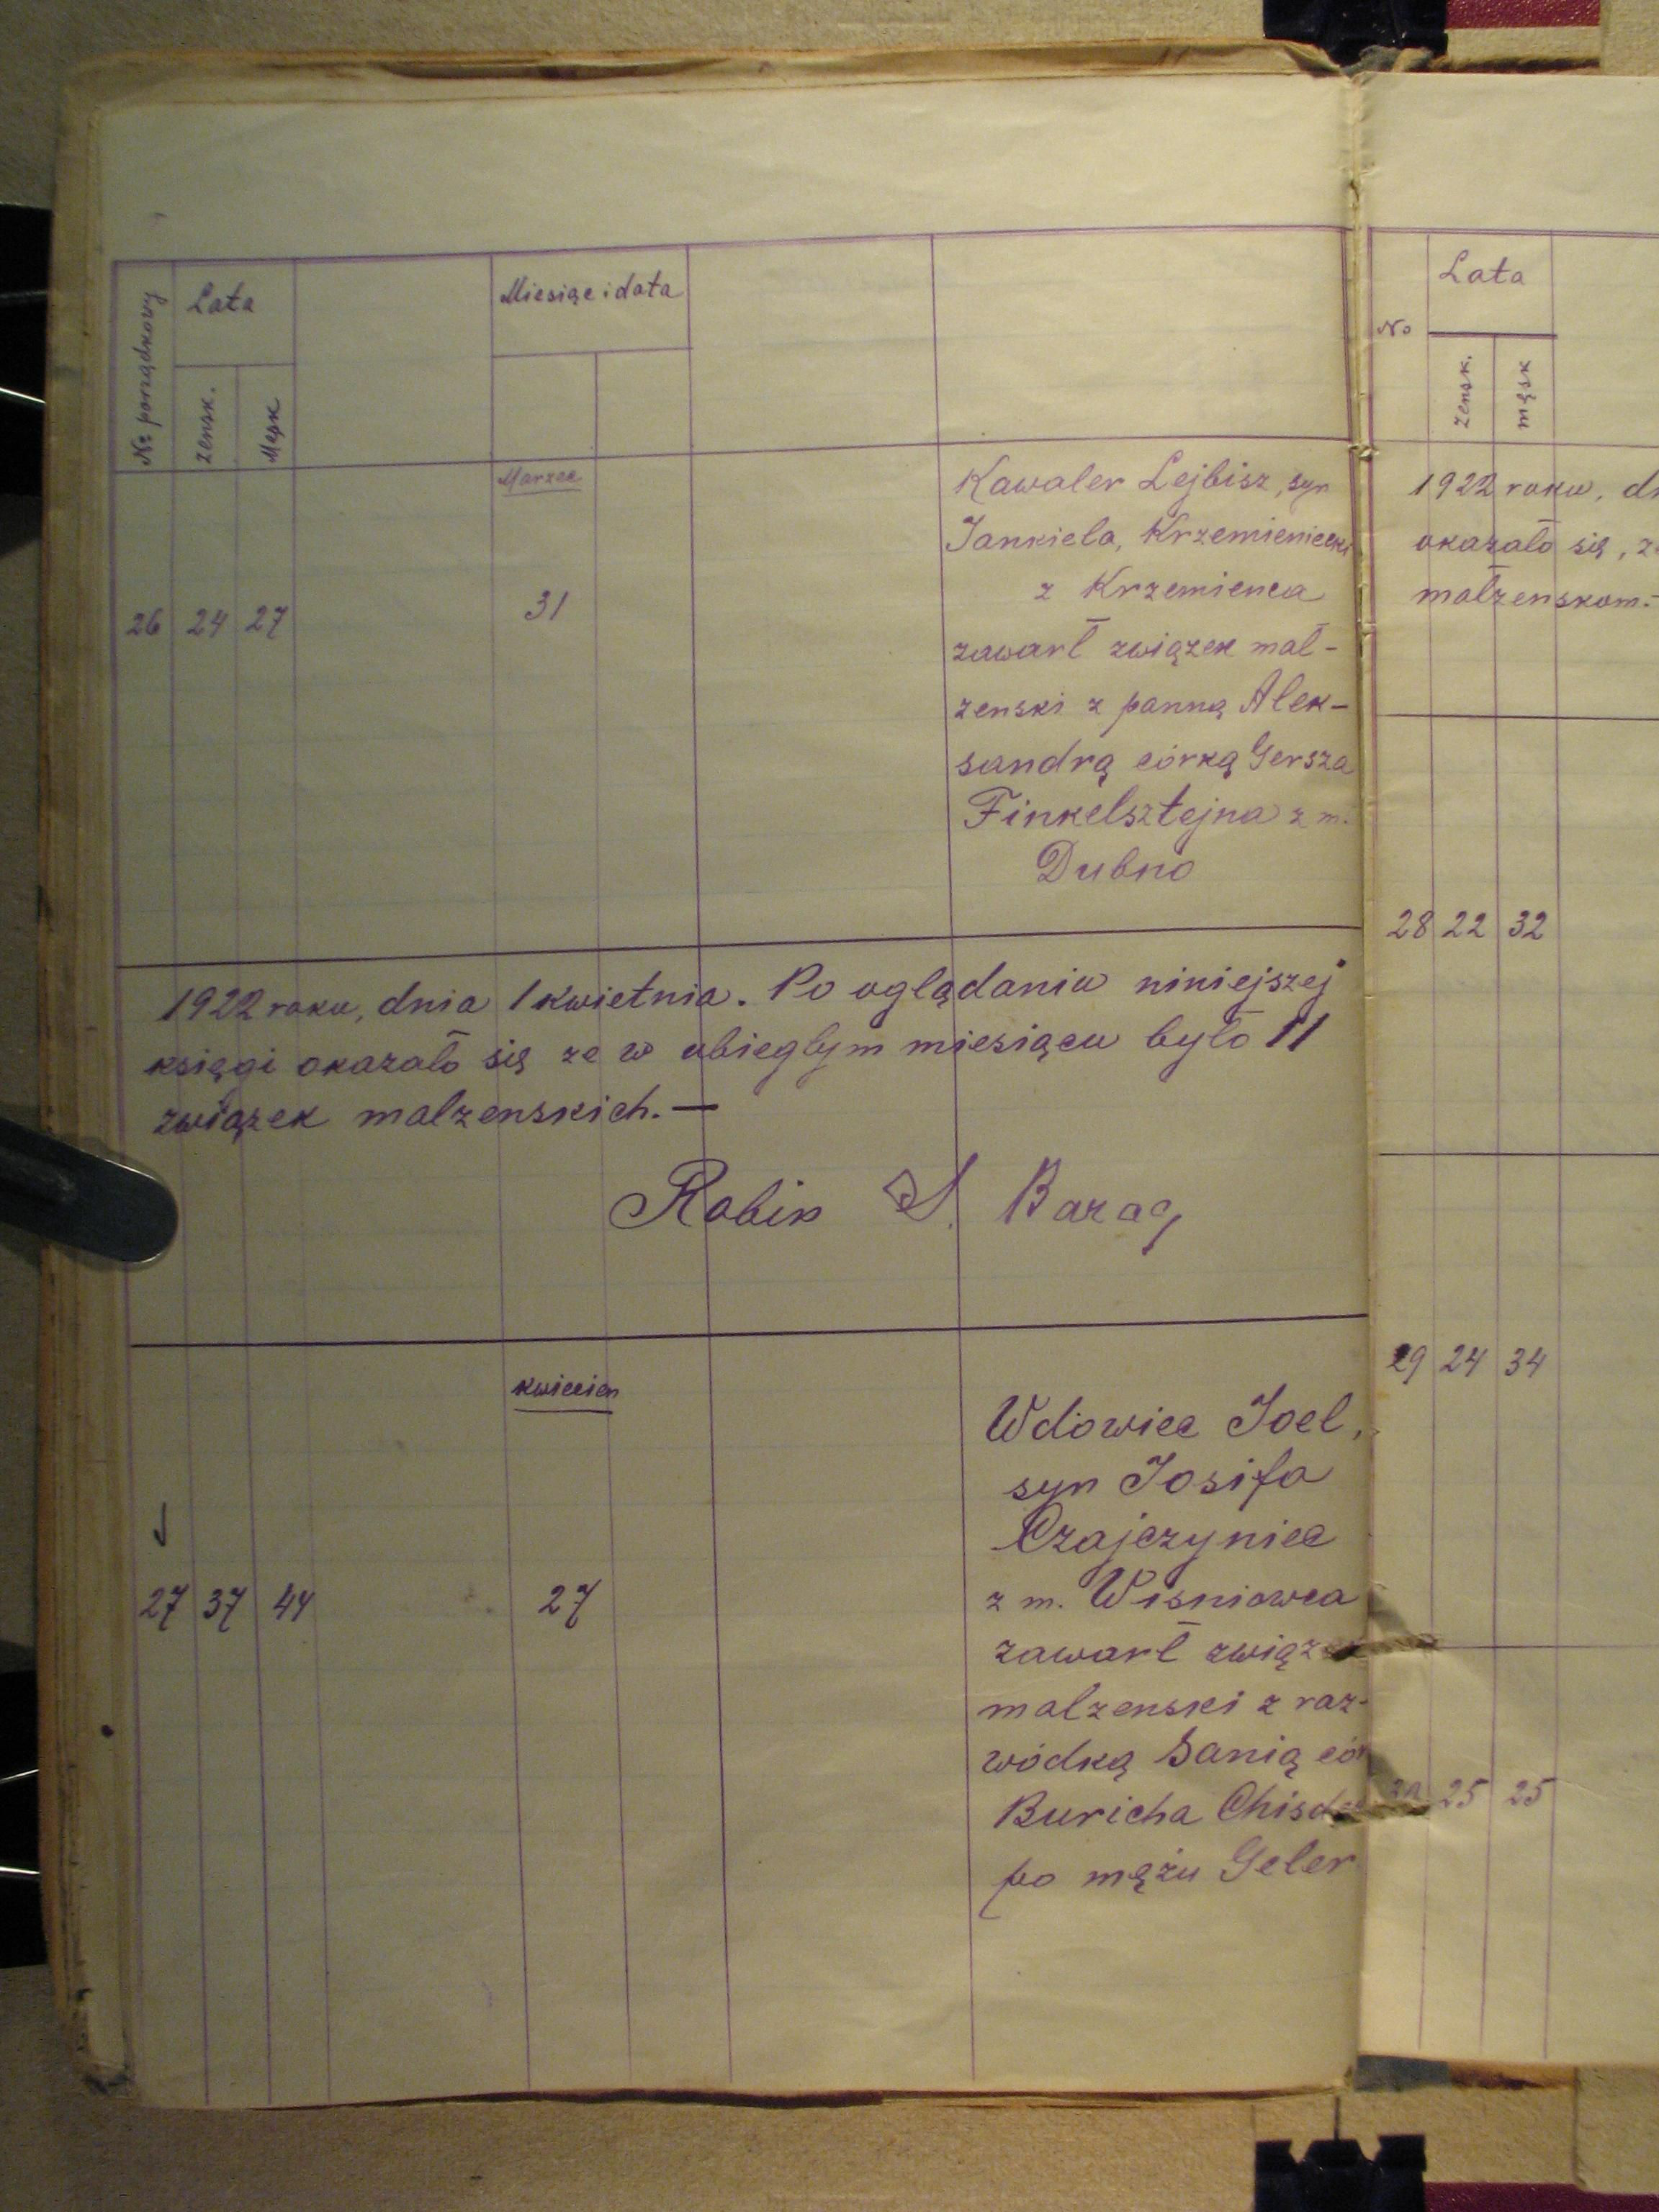 № porządkowy
Lata
zensk.
Męsk
Miesiąc i data
Marzec
26 24 27 31
Kawaler Lejbisz, syn
Jankiela, Krzemieniecki
z Krzemienca
zawarł związek mal-
zenski z panną Alek-
sandrą córką Gersza
Finkelsztejna z m.
Dubno
1922 roku, dnia 1 kwietnia. Po oglądaniu niniejszej
księgi okazało się ze w ubieglym miesiącu było 11
związek malzenskich. —
Rabin S. Barag
kwiecien
27 37 44 27
Wdowiec Joel,
syn Josifa
Czajczyniec
z m. Wisniowca
zawarł
malzenski z roz-
wódką Sanią
Buricha
po mężu Geler
No
Lata
zensk.
męsk
1922 roku,
okazało się,
małzenskom.
28 22 32
29 24 34
25 25